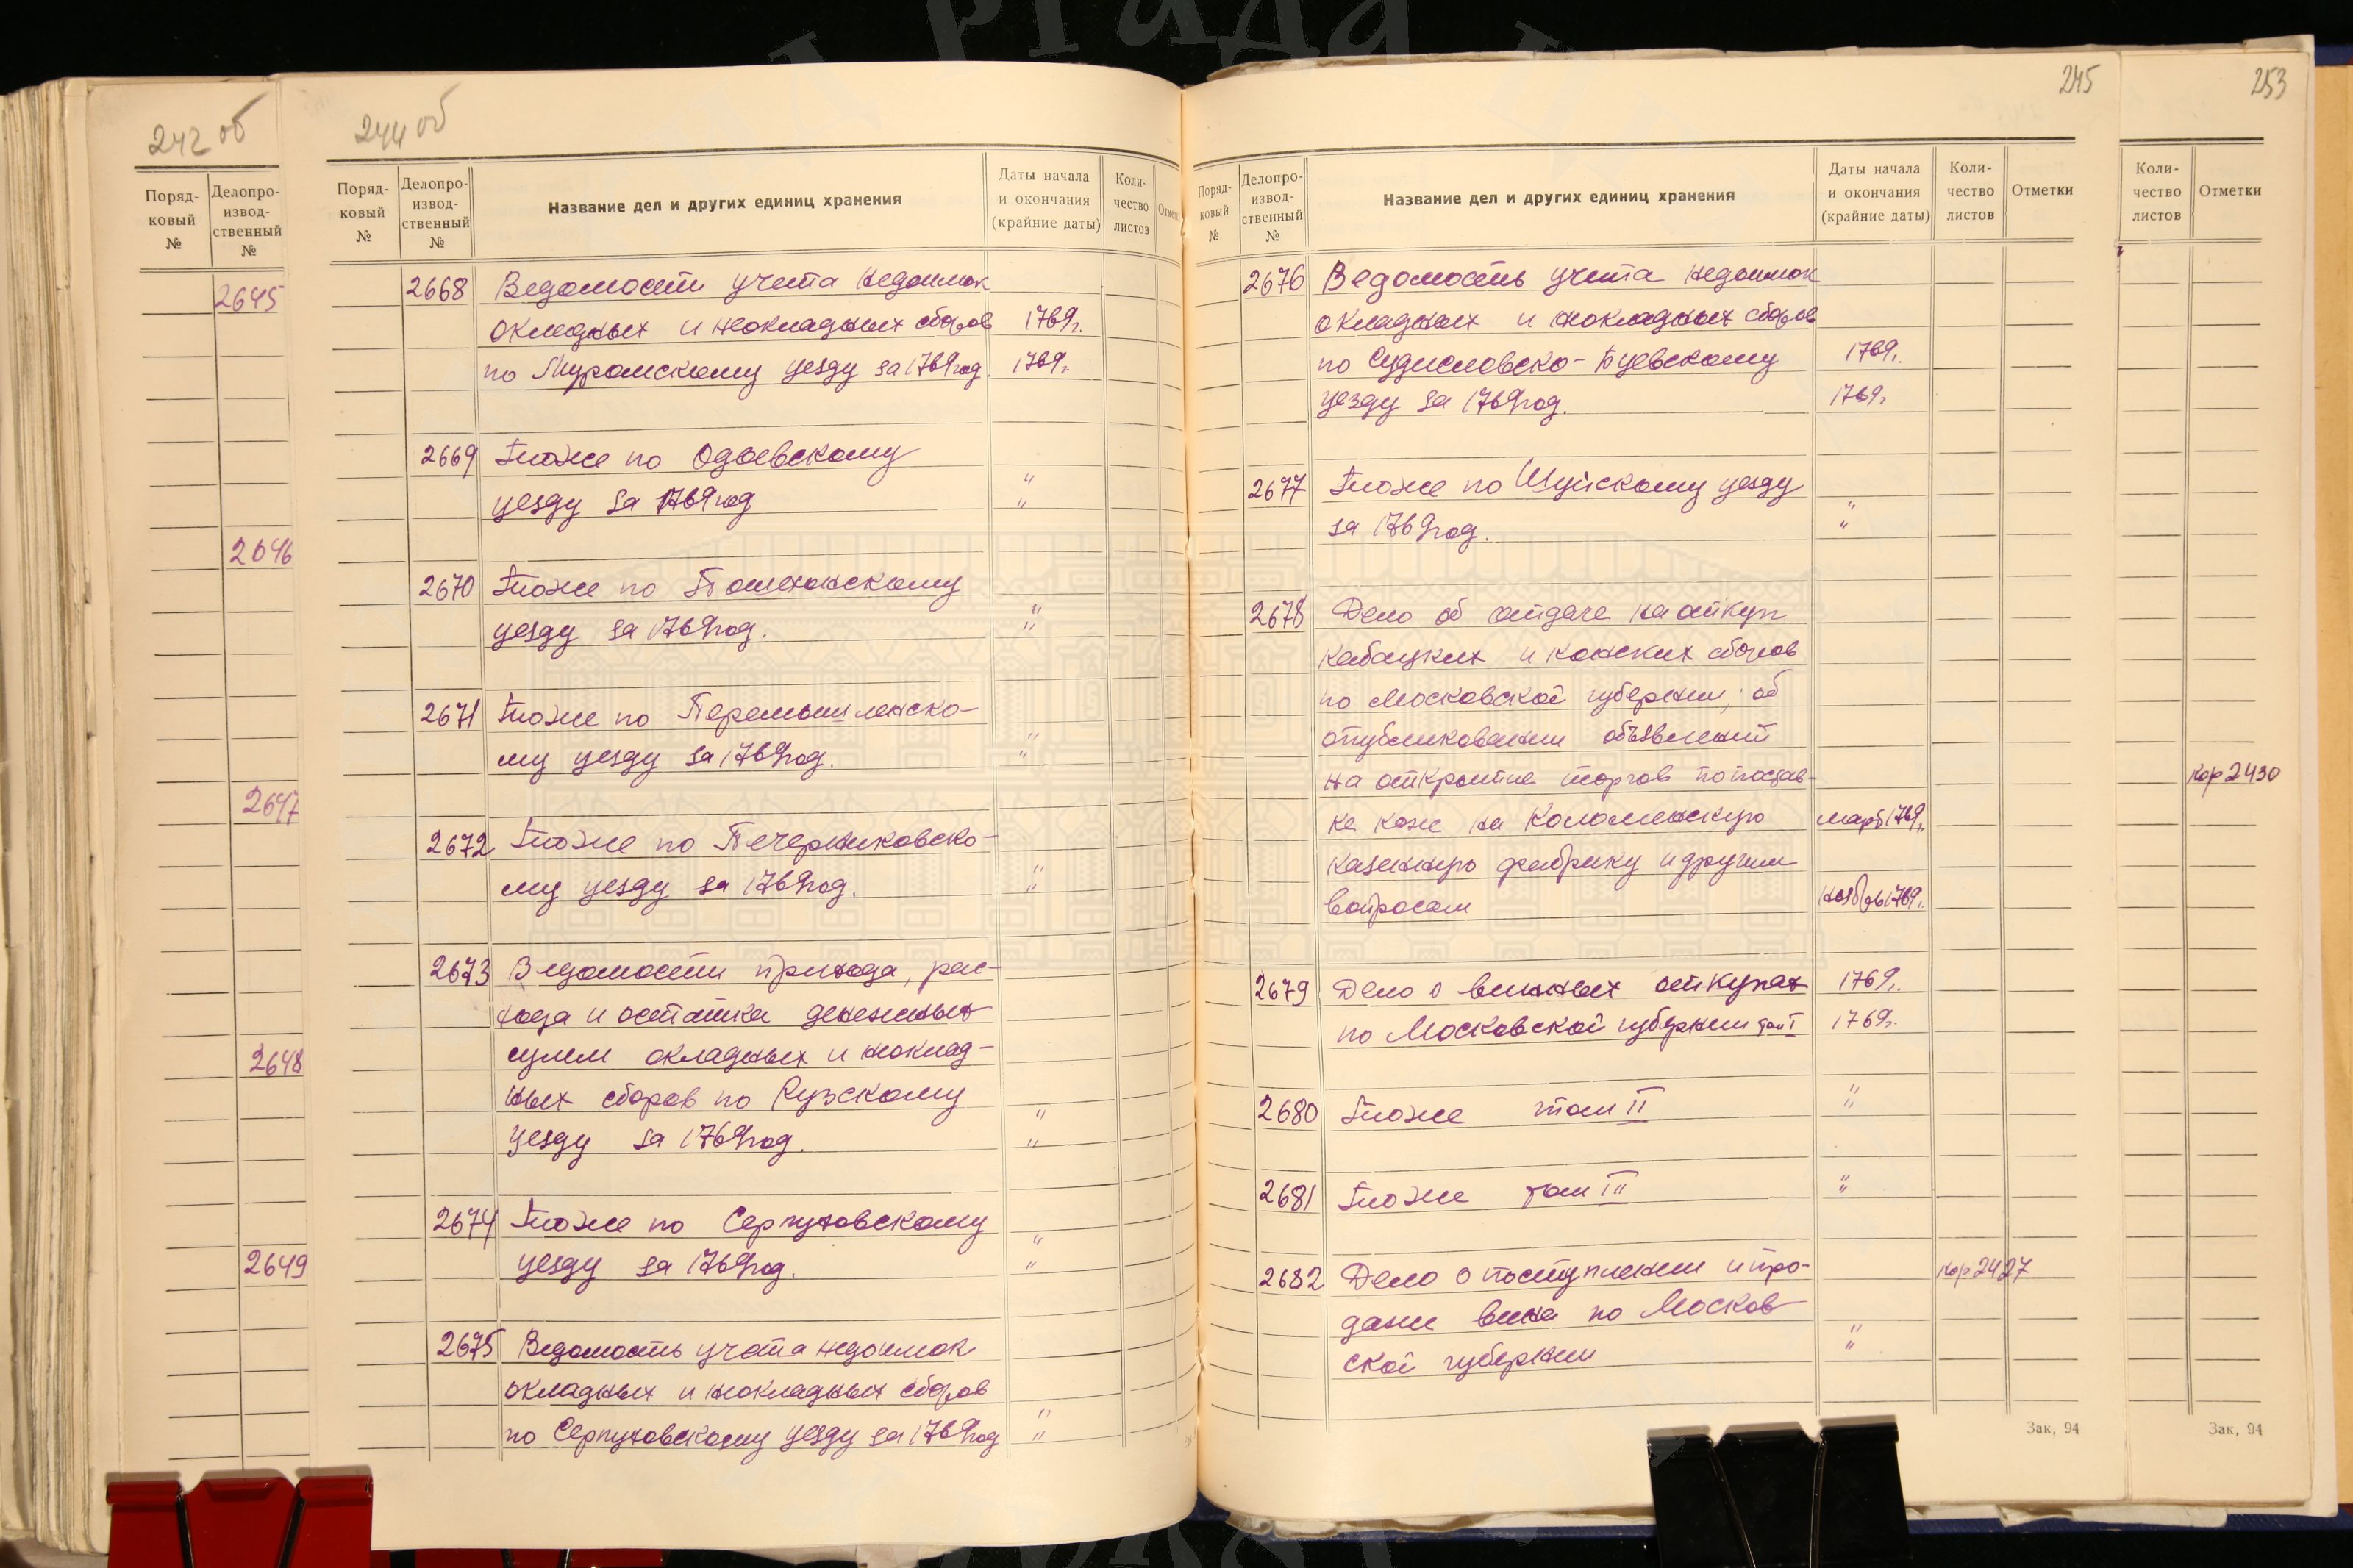 242 об
Поряд-
ковый
№
Делопро-
извод-
ственный
№
2645
2646
2647
2648
2649
244 об
Поряд-
ковый
№
Делопро-
извод-
ственный
№
Название дел и других единиц хранения
Даты начала
и окончания
(крайние даты)
Коли-
чество
листов
2668 Ведомости учета недоимок
окладных и неокладных сборов 1769г.
по Муромскому уезду за 1769 год. 1769г.
2669 Тоже по Одоевскому "
уезду за 1769 год "
2670 Тоже по Пошехонскому "
уезду за 1769 год. "
2671 Тоже по Перемышленско- "
му уезду за 1769 год. "
2672 Тоже по Печерниковско- "
му уезду за 1769 год. "
2673 Ведомости прихода, рас-
хода и остатка денежных
сумм окладных и неоклад-
ных сборов по Рузскому "
уезду за 1769 год. "
2674 Тоже по Серпуховскому "
уезду за 1769 год. "
2675 Ведомость учета недоимок
окладных и неокладных сборов "
по Серпуховскому уезду за 1769 год "
245
Поряд-
ковый
№
Делопро-
извод-
ственный
№
Название дел и других единиц хранения
Даты начала
и окончания
(крайние даты)
Коли-
чество
листов
Отметки
2676 Ведомость учета недоимок
окладных и неокладных сборов
по Судисловско-Буевскому 1769г.
уезду за 1769 год. 1769г.
2677 Тоже по Шуйскому уезду "
за 1769 год. "
2678 Дело об отдаче на откуп
кабацких и конских сборов
по Московской губернии; об
опубликовании объявлений
на открытие торгов по постав-
ке кож на Коломенскую март 1769г.
казенную фабрику и другим
вопросам ноябрь 1769г.
2679 Дело о винных откупах 1769г.
по Московской губернии том I 1769г.
2680 Тоже том II "
"
2681 Тоже том III "
"
2682 Дело о поступлении и про- кор 2427
даже вина по Москов- "
ской губернии "
Зак, 94
253
Коли-
чество
листов
Отметки
кор 2430
Зак, 94